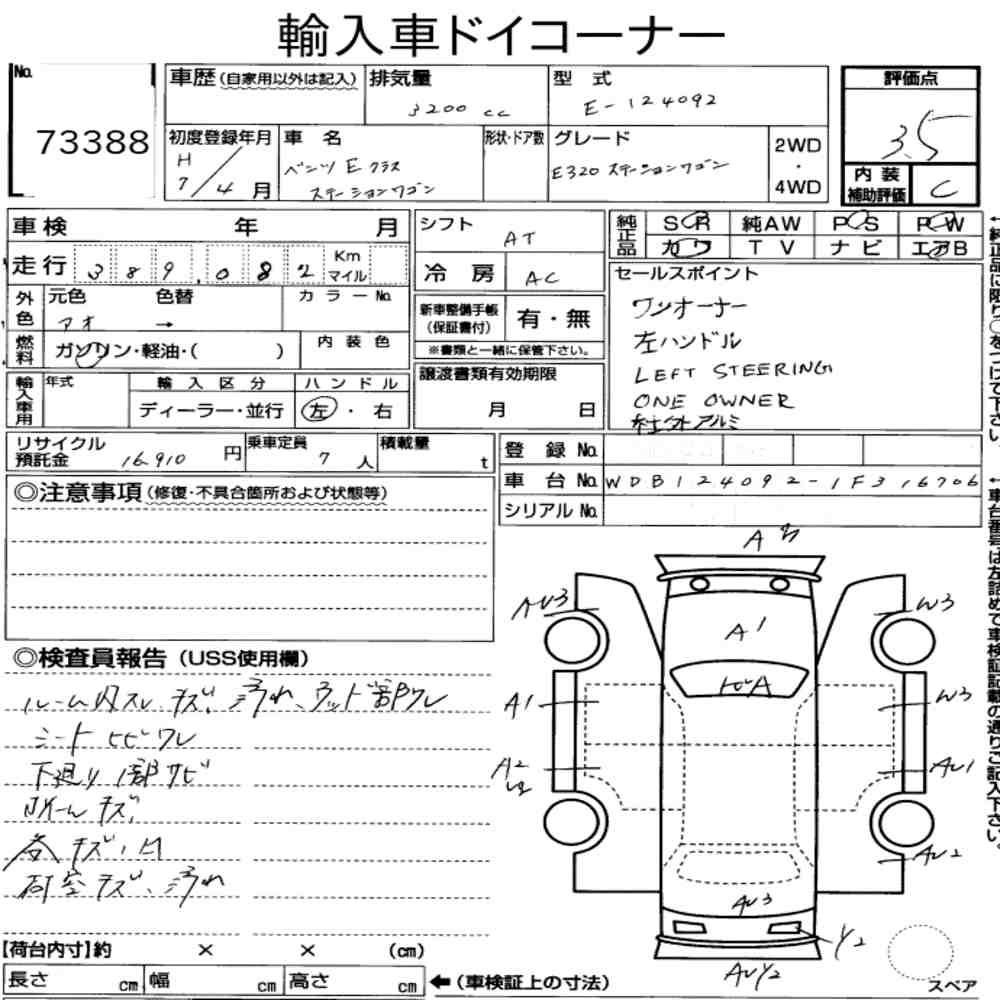 輸入車ドイコーナー
No. 73388
車歴(自家用以外は記入)
排気量 3200 cc
型式 E-124092
評価点 3.5
初度登録年月 H7/4月
車名 ベンツ Eクラス ステーションワゴン
形状・ドア数
グレード E320 ステーションワゴン
2WD・4WD
内装補助評価 C
車検 年 月
シフト AT
純正品 SR 純AW PS PW
カワ TV ナビ エアB
走行 389,082 Km マイル
冷房 AC
セールスポイント
ワンオーナー
左ハンドル
LEFT STEERING
ONE OWNER
社外アルミ
外色 元色 アオ 色替 → カラーNo.
新車整備手帳(保証書付) 有・無
※書類と一緒に保管下さい。
燃料 ガソリン・軽油・( )
内装色
譲渡書類有効期限
月 日
輸入車用 年式 輸入区分 ハンドル
ディーラー・並行 左・右
リサイクル預託金 16,910円
乗車定員 7人
積載量 t
登録No.
車台No. WDB124092-1F316706
シリアルNo.
◎注意事項(修復・不具合箇所および状態等)
◎検査員報告(USS使用欄)
ルーム内スレ キズ、汚れ、ウッド部ワレ
シート ヒビワレ
下廻り 1部サビ
キズ、
各キズ、凹
荷室キズ、汚れ
A
AU3
W3
A1
トビA
A1
W3
A2
AU1
AU2
AU3
Y2
AUY2
スペア
【荷台内寸】約 × × (cm)
長さ cm 幅 cm 高さ cm
←(車検証上の寸法)
←純正品に限り○をつけて下さい。
←車台番号は左詰めで車検証記載の通りご記入下さい。